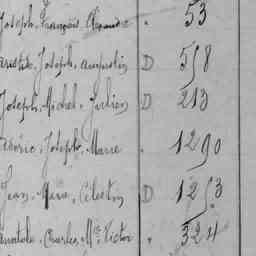 Joseph, François, Alexandre . 53
Aristide, Joseph, Augustin D 558
Joseph, Michel, Julien D 213
Joseph, Marie . 1290
Jean, Marie, Célestin D 1253
Anatole, Charles, Mie Victor . 324